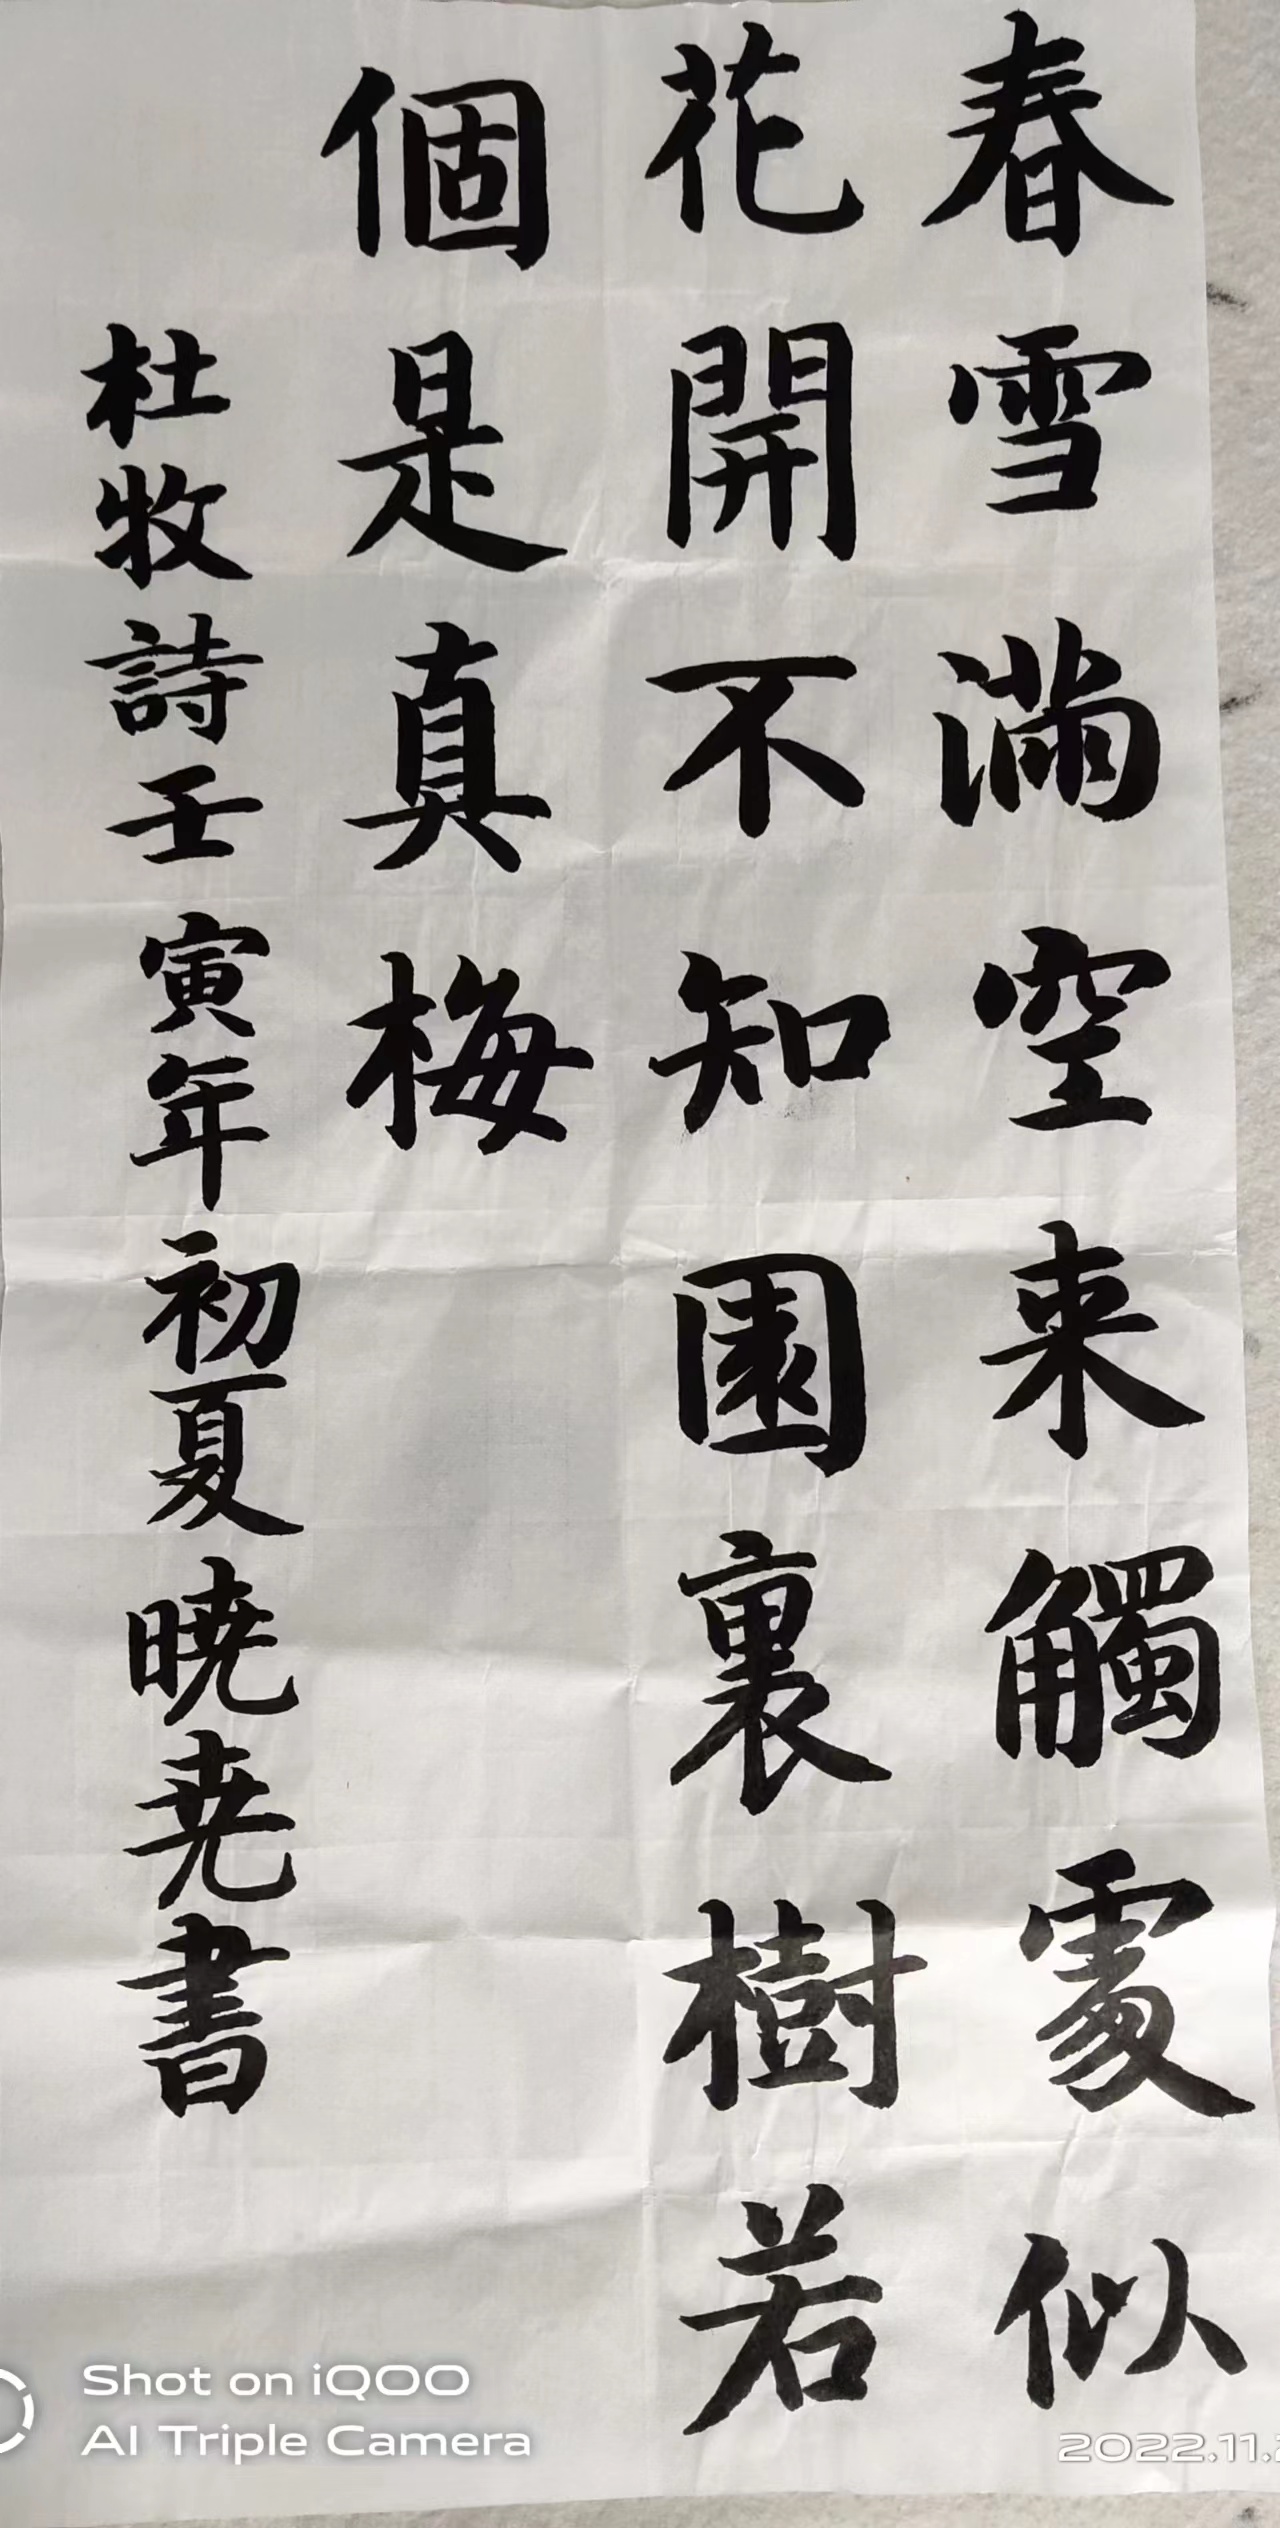 春雪滿空来觸處似
花開不知園裏樹若
個是真梅
杜牧詩壬寅年初夏曉尭書
Shot on iQOO
AI Triple Camera
2022.11.2